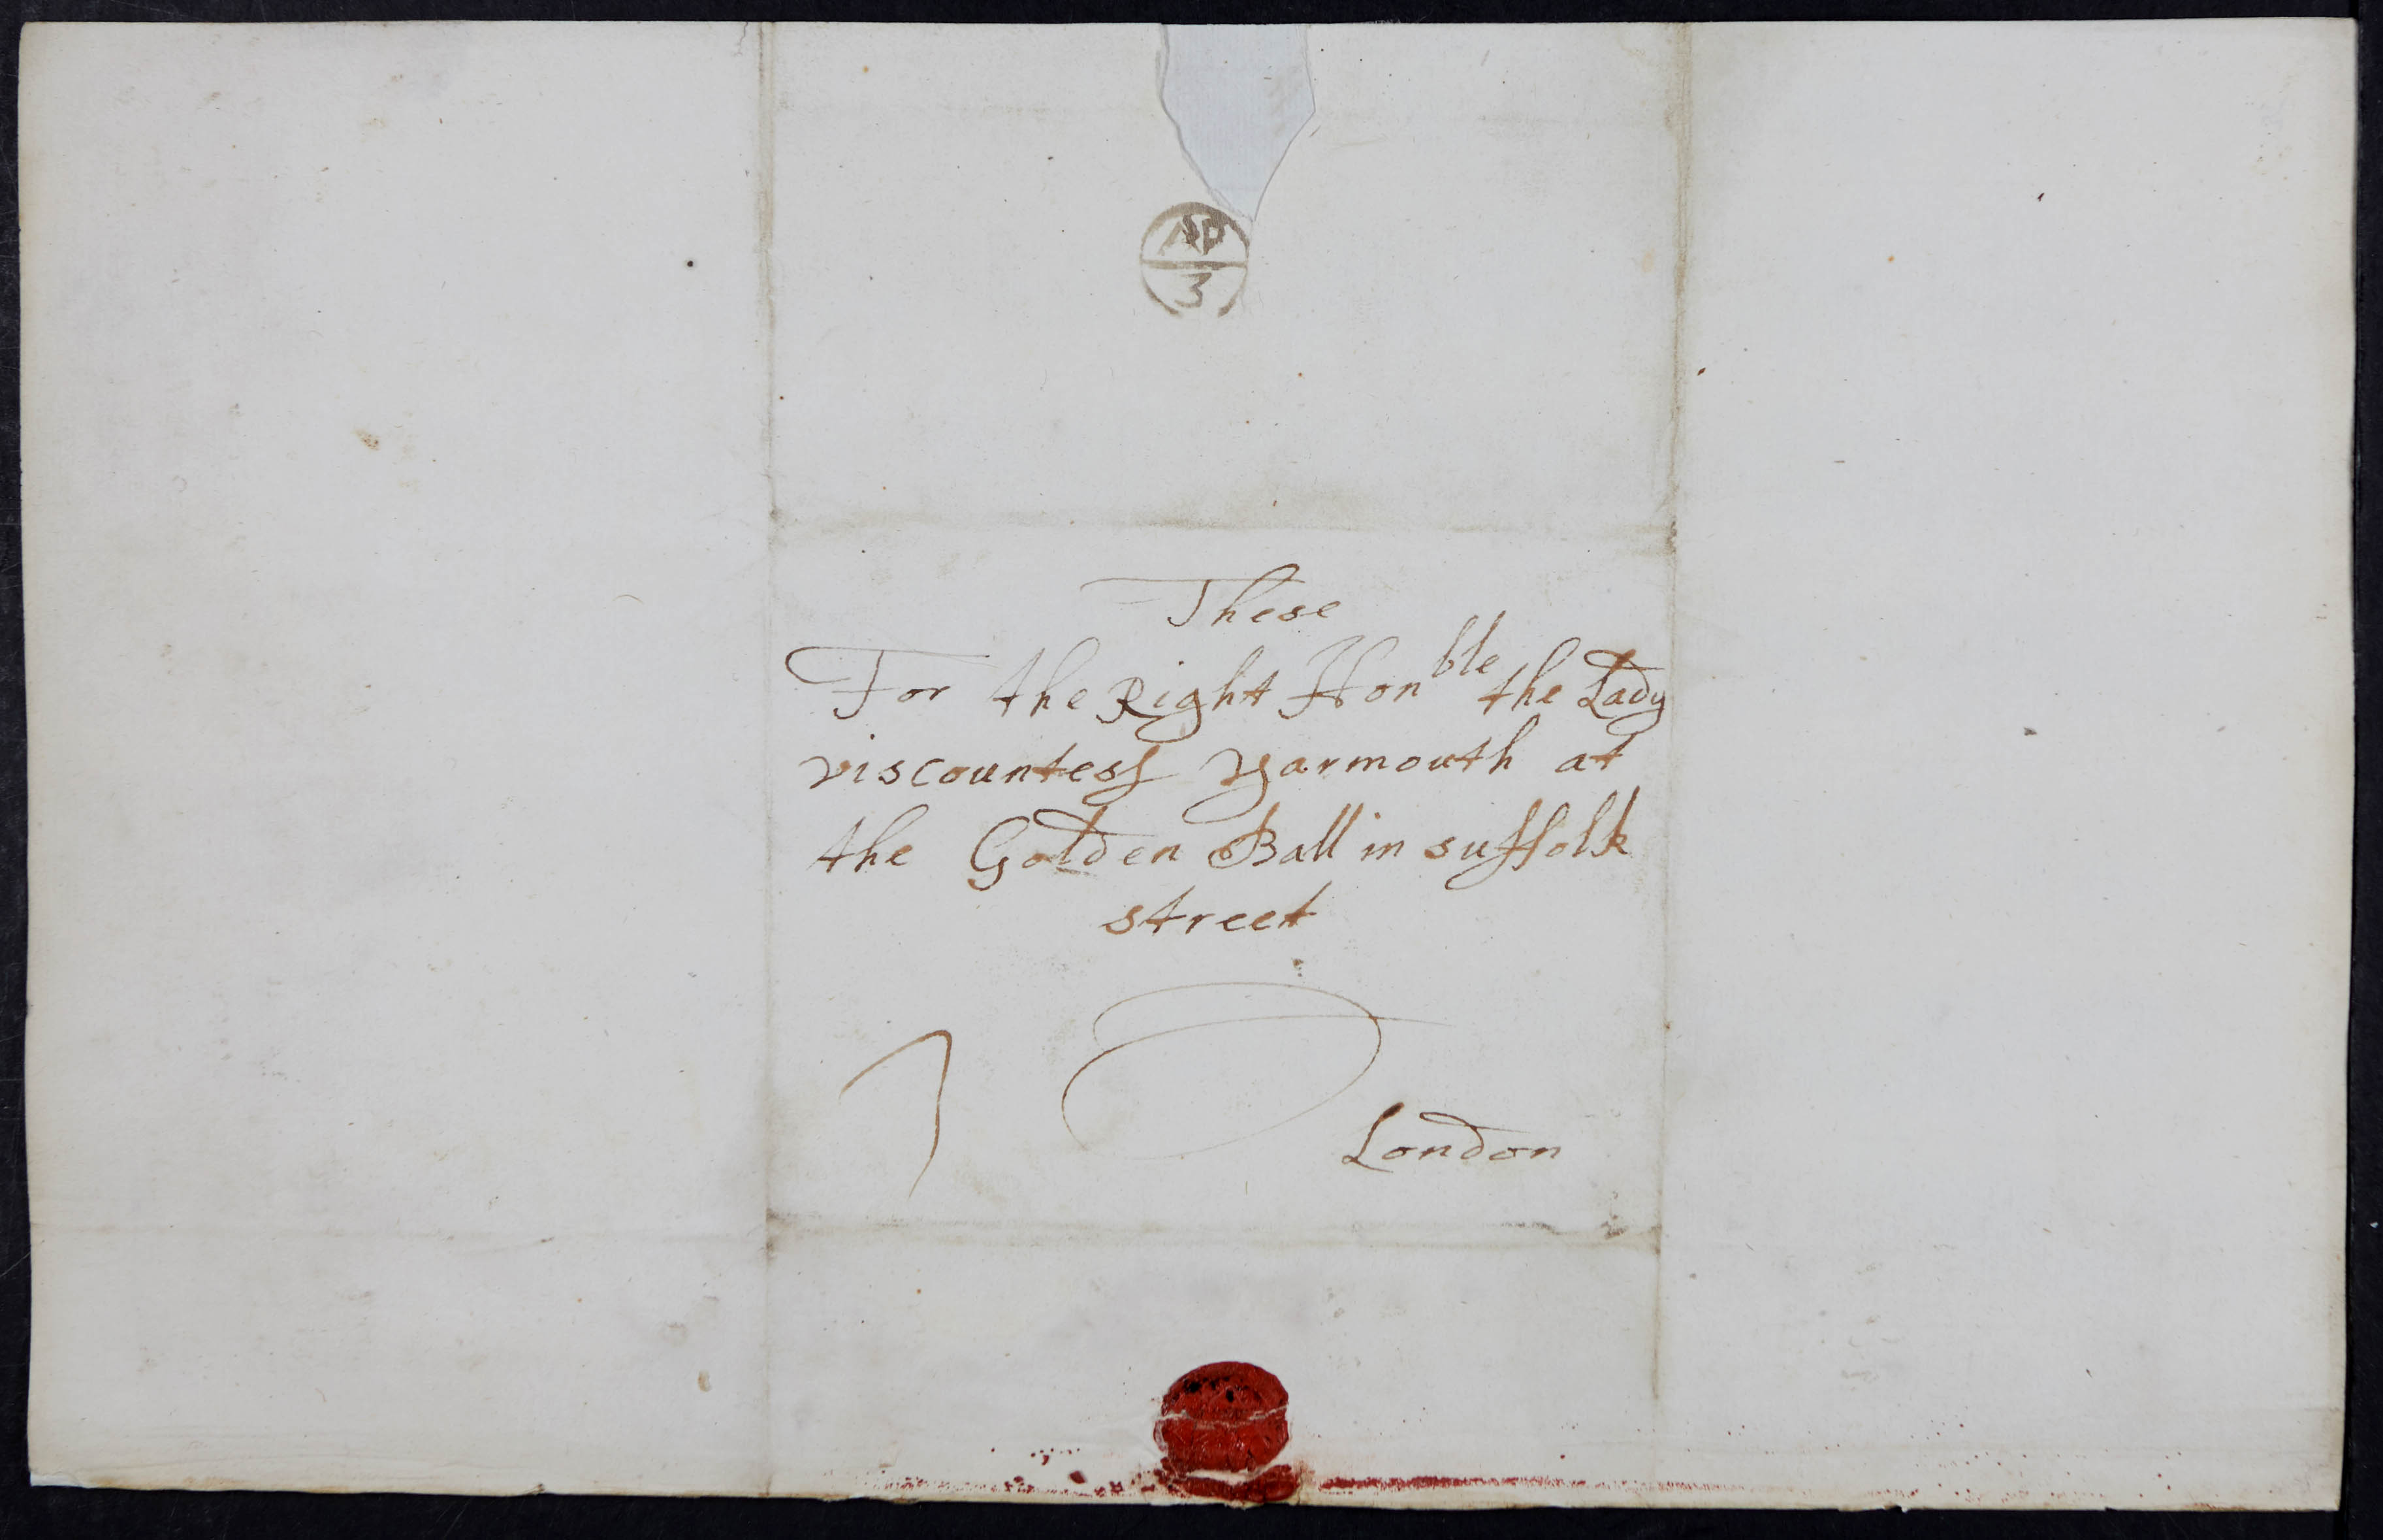 AP
3
These
For the Right Hon^ble the Lady
viscountess Yarmouth at
the Golden Ball in suffolk
street
London